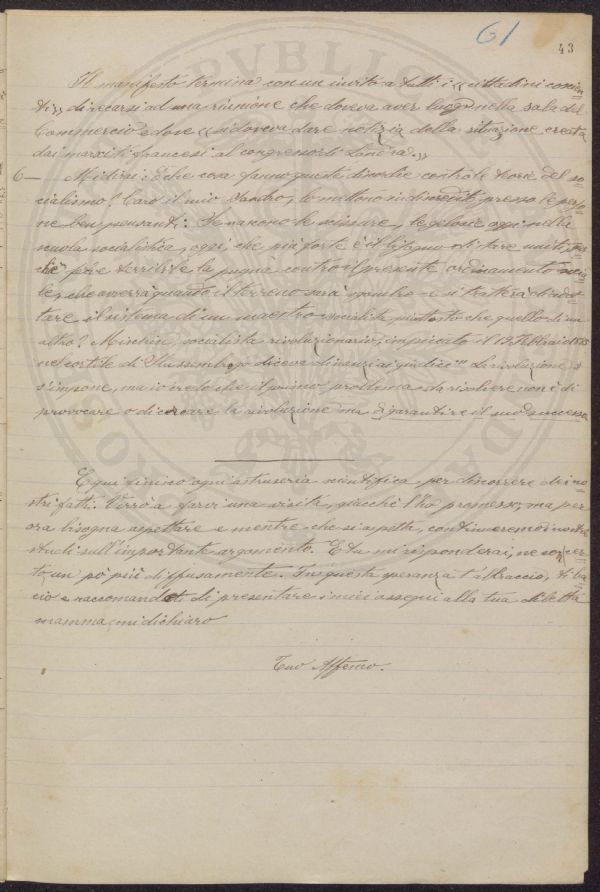 61
43
Il manifesto termina con un invito a tutti i « cittadini coscien
ti » di recarsi ad una riunione che doveva aver luogo nella sala del
Commercio e dove « si doveva dare notizia della situazione creata
dai marxisti francesi al congresso di Londra. »
6 — Mi dirai: E che cosa fanno queste discordie contro le teorie del so-
cialismo? Caro il mio Sandro, lo mettono in discredito presso le perso-
ne ben pensanti: Se nascono le scissure, le gelosie oggi nella
scuola socialistica, oggi, che più forte è il bisogno di stare uniti per-
chè più terribile la pugna contro il presente ordinamento socia-
le, che avverrà quando il terreno sarà sgombro e si tratterà di adot-
tare il sistema di un maestro socialista, piuttosto che quello di un
altro? socialista rivoluzionario, impiccato il 19 Febbraio 1885
nel cortile di diceva dinanzi ai giudici: " La rivoluzione
s'impone, ma io credo che il primo problema da risolvere non è di
provocare o di creare la rivoluzione ma di garantire il suo successo
E qui finisco ogni astruseria scientifica, per discorrere dei no-
stri fatti. Verrò a farvi una visita, giacchè l'ho promesso, ma per
ora bisogna aspettare e mentre che si aspetta, continueremo i nostri
studi sull'importante argomento. E tu mi risponderai, ne son cer-
to un pò più diffusamente. In questa speranza t'abbraccio, ti ba-
cio e raccomandoti di presentare i miei ossequi alla tua diletta
mamma, mi dichiaro
Tuo Affemo.